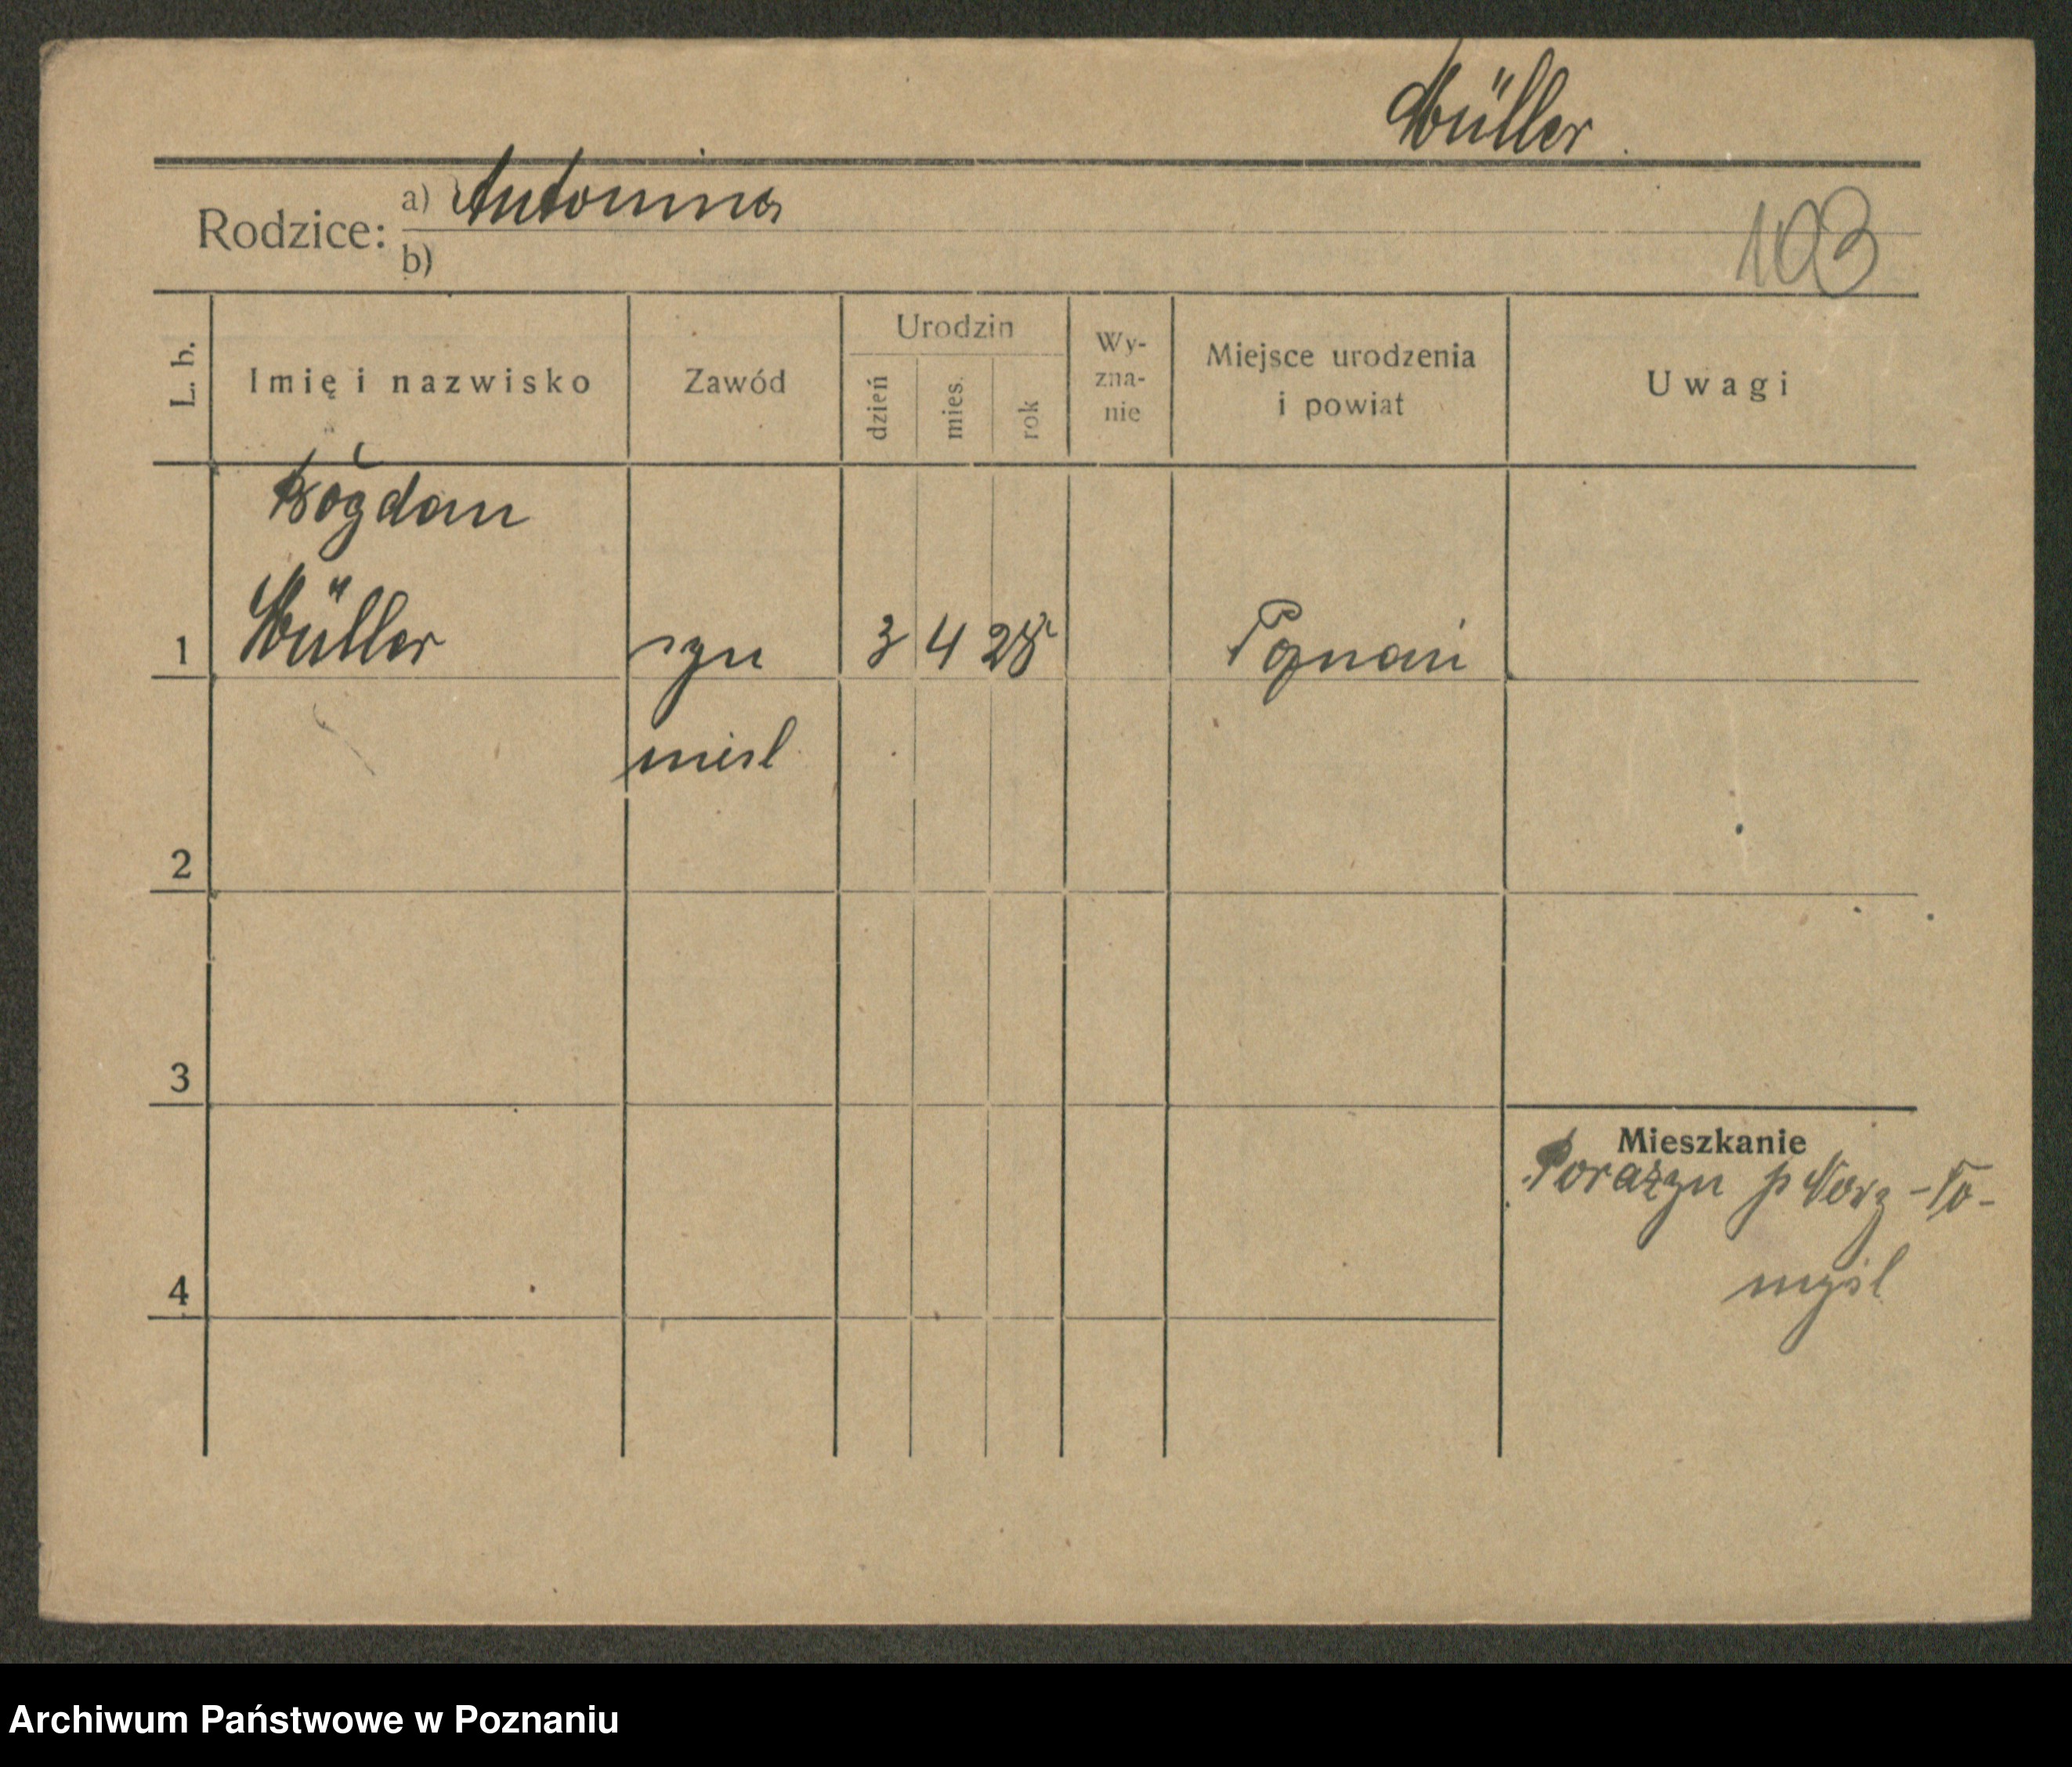 Müller
Rodzice: a) Antonina
b)
103
L. b. Imię i nazwisko Zawód Urodzin dzień mies. rok Wy-zna-nie Miejsce urodzenia i powiat Uwagi
Bogdan
1 Müller syn 3 4 28 Poznań
nieśl
2
3
Mieszkanie
Porażyn p Nowy-To-
myśl
4
Archiwum Państwowe w Poznaniu